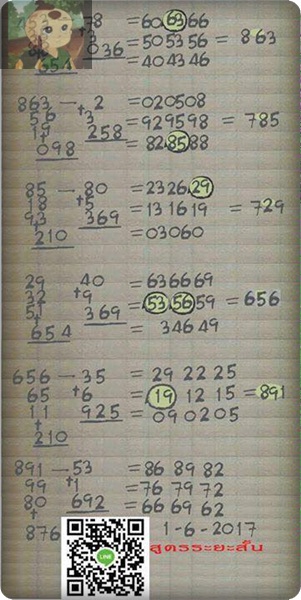 78 = 60 63 66
+3 = 50 53 56 = 863
654 036 = 40 43 46
863 — 2 = 02 05 08
56 +3 = 92 95 98 = 785
19 258 = 82 85 88
+
098
85 — 80 = 23 26 29
18 +5 = 13 16 19 = 729
93 369 = 03 06 0
+
210
29 40 = 63 66 69
32 +9 = 53 56 59 = 656
51 369 = 34 6 49
+
654
656 — 35 = 29 22 25
65 +6 = 19 12 15 = 891
11 925 = 09 02 05
+
210
891 — 53 = 86 89 82
99 +1 = 76 79 72
80 692 = 66 69 62
+
876 1-6-2017
LINE
สูตรระยะสั้น